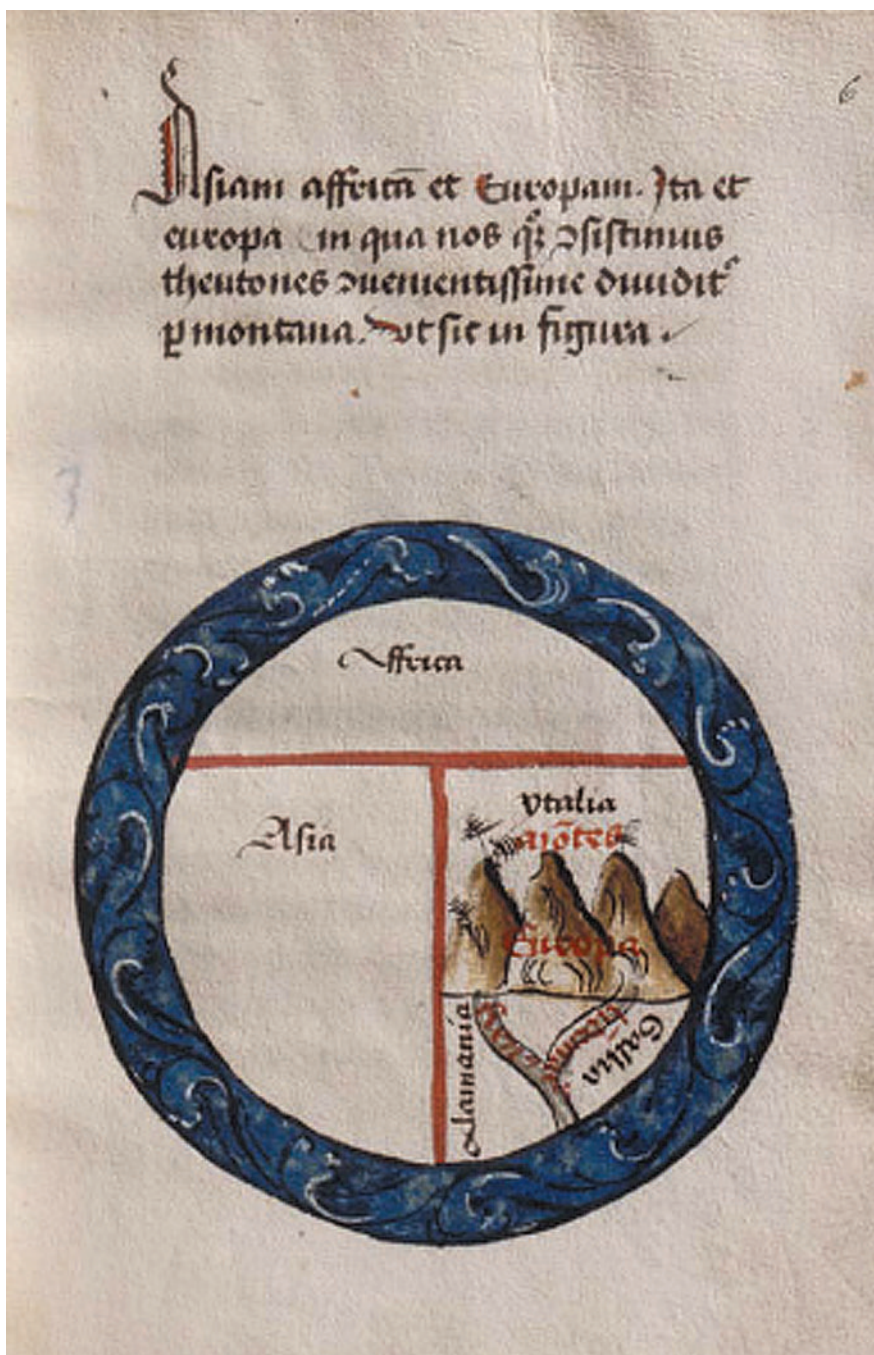 6
Asiam affricā et Europam. Ita et
europa in qua nos qꝛ ↄsistimus
theutones ↄuenientissime diuidit᷑
ꝑ montana. Vt sic in figura.
Affrica
Asia
ytalia
mōtes
Europa
Alamania
Gallia